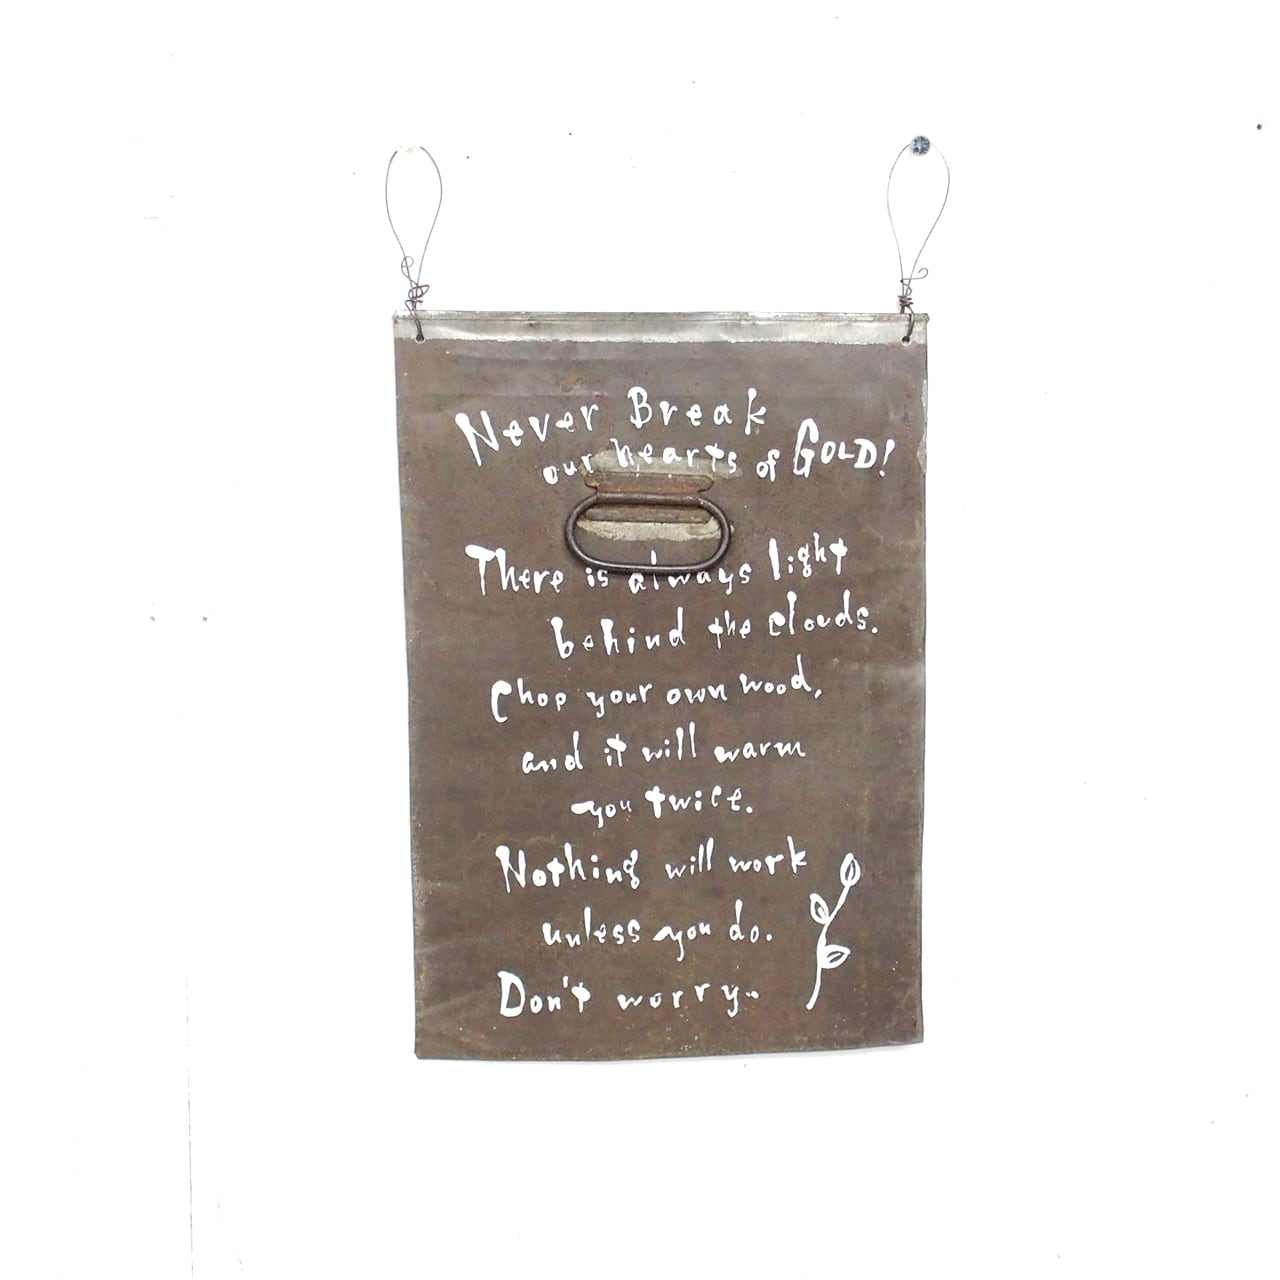 Never Break
our hearts of GOLD!
There is always light
behind the clouds.
Chop your own wood,
and it will warm
you twice.
Nothing will work
unless you do.
Don't worry.